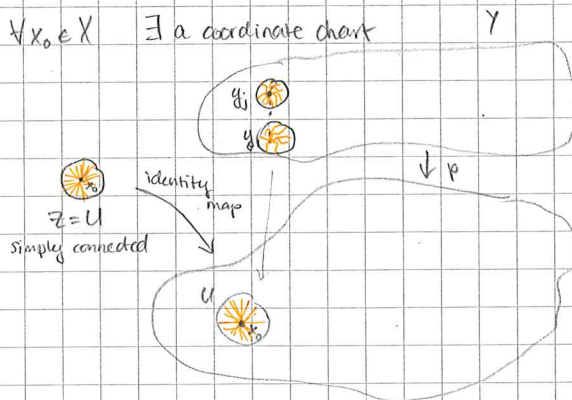 ∀ x₀ ∈ X ∃ a coordinate chart Y
yⱼ
y
p
identity
map
x₀
Z = U
simply connected
U
x₀